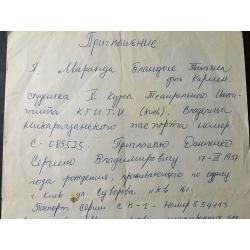 Приглашение
Я, Миранда Бландис Татьяна
дель Кармен,
студентка II курса Театрального Инсти-
тута КГИТИ (Киев). Владелица
никарагуанского паспорта номер
С-085525 Приглашаю
Сергея Владимировича 17-III 1957
года рождения, проживающего по адресу
г. Киев ул Суворова
Паспорт серии С К-I- Номер 534113